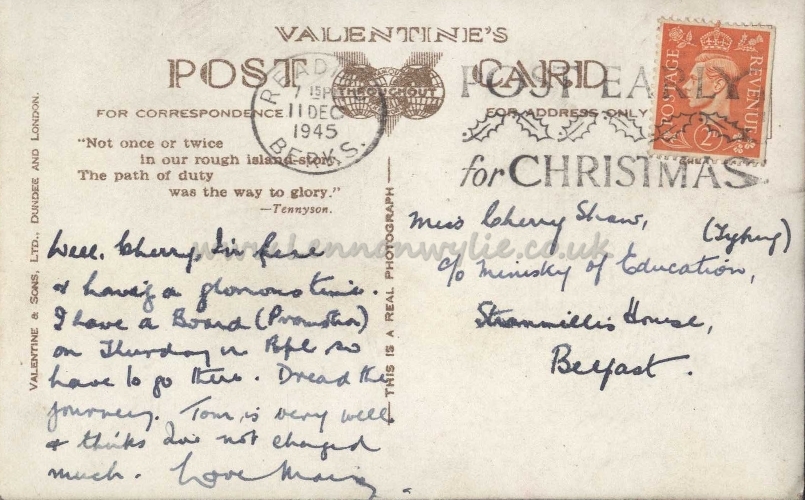 VALENTINE'S
POST CARD
THROUGHOUT
FOR CORRESPONDENCE
FOR ADDRESS ONLY
READING
7 15 P
11 DEC
1945
BERKS.
POST EARLY
for CHRISTMAS
POSTAGE
REVENUE
2D
"Not once or twice
in our rough island-story
The path of duty
was the way to glory."
—Tennyson.
VALENTINE & SONS, LTD., DUNDEE AND LONDON.
THIS IS A REAL PHOTOGRAPH
www.lennonwylie.co.uk
Well, Cherry, I'm fine
& having a glorious time.
I have a Board (Promotion)
on Thursday in Bpl so
have to go there. Dread the
journey. Tom is very well
& thinks I've not changed
much. Love
Miss Cherry Shaw,
(Typing)
c/o Ministry of Education,
Stranmillis House,
Belfast.